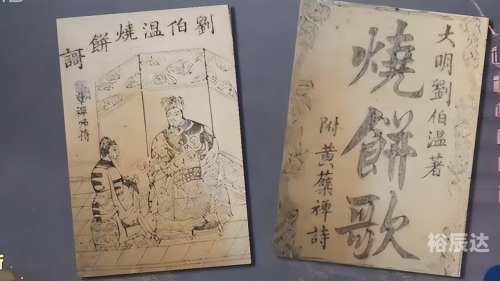 劉伯溫燒餅謌
大明劉伯溫著
燒餅歌
附黃蘗禪詩
裕辰达